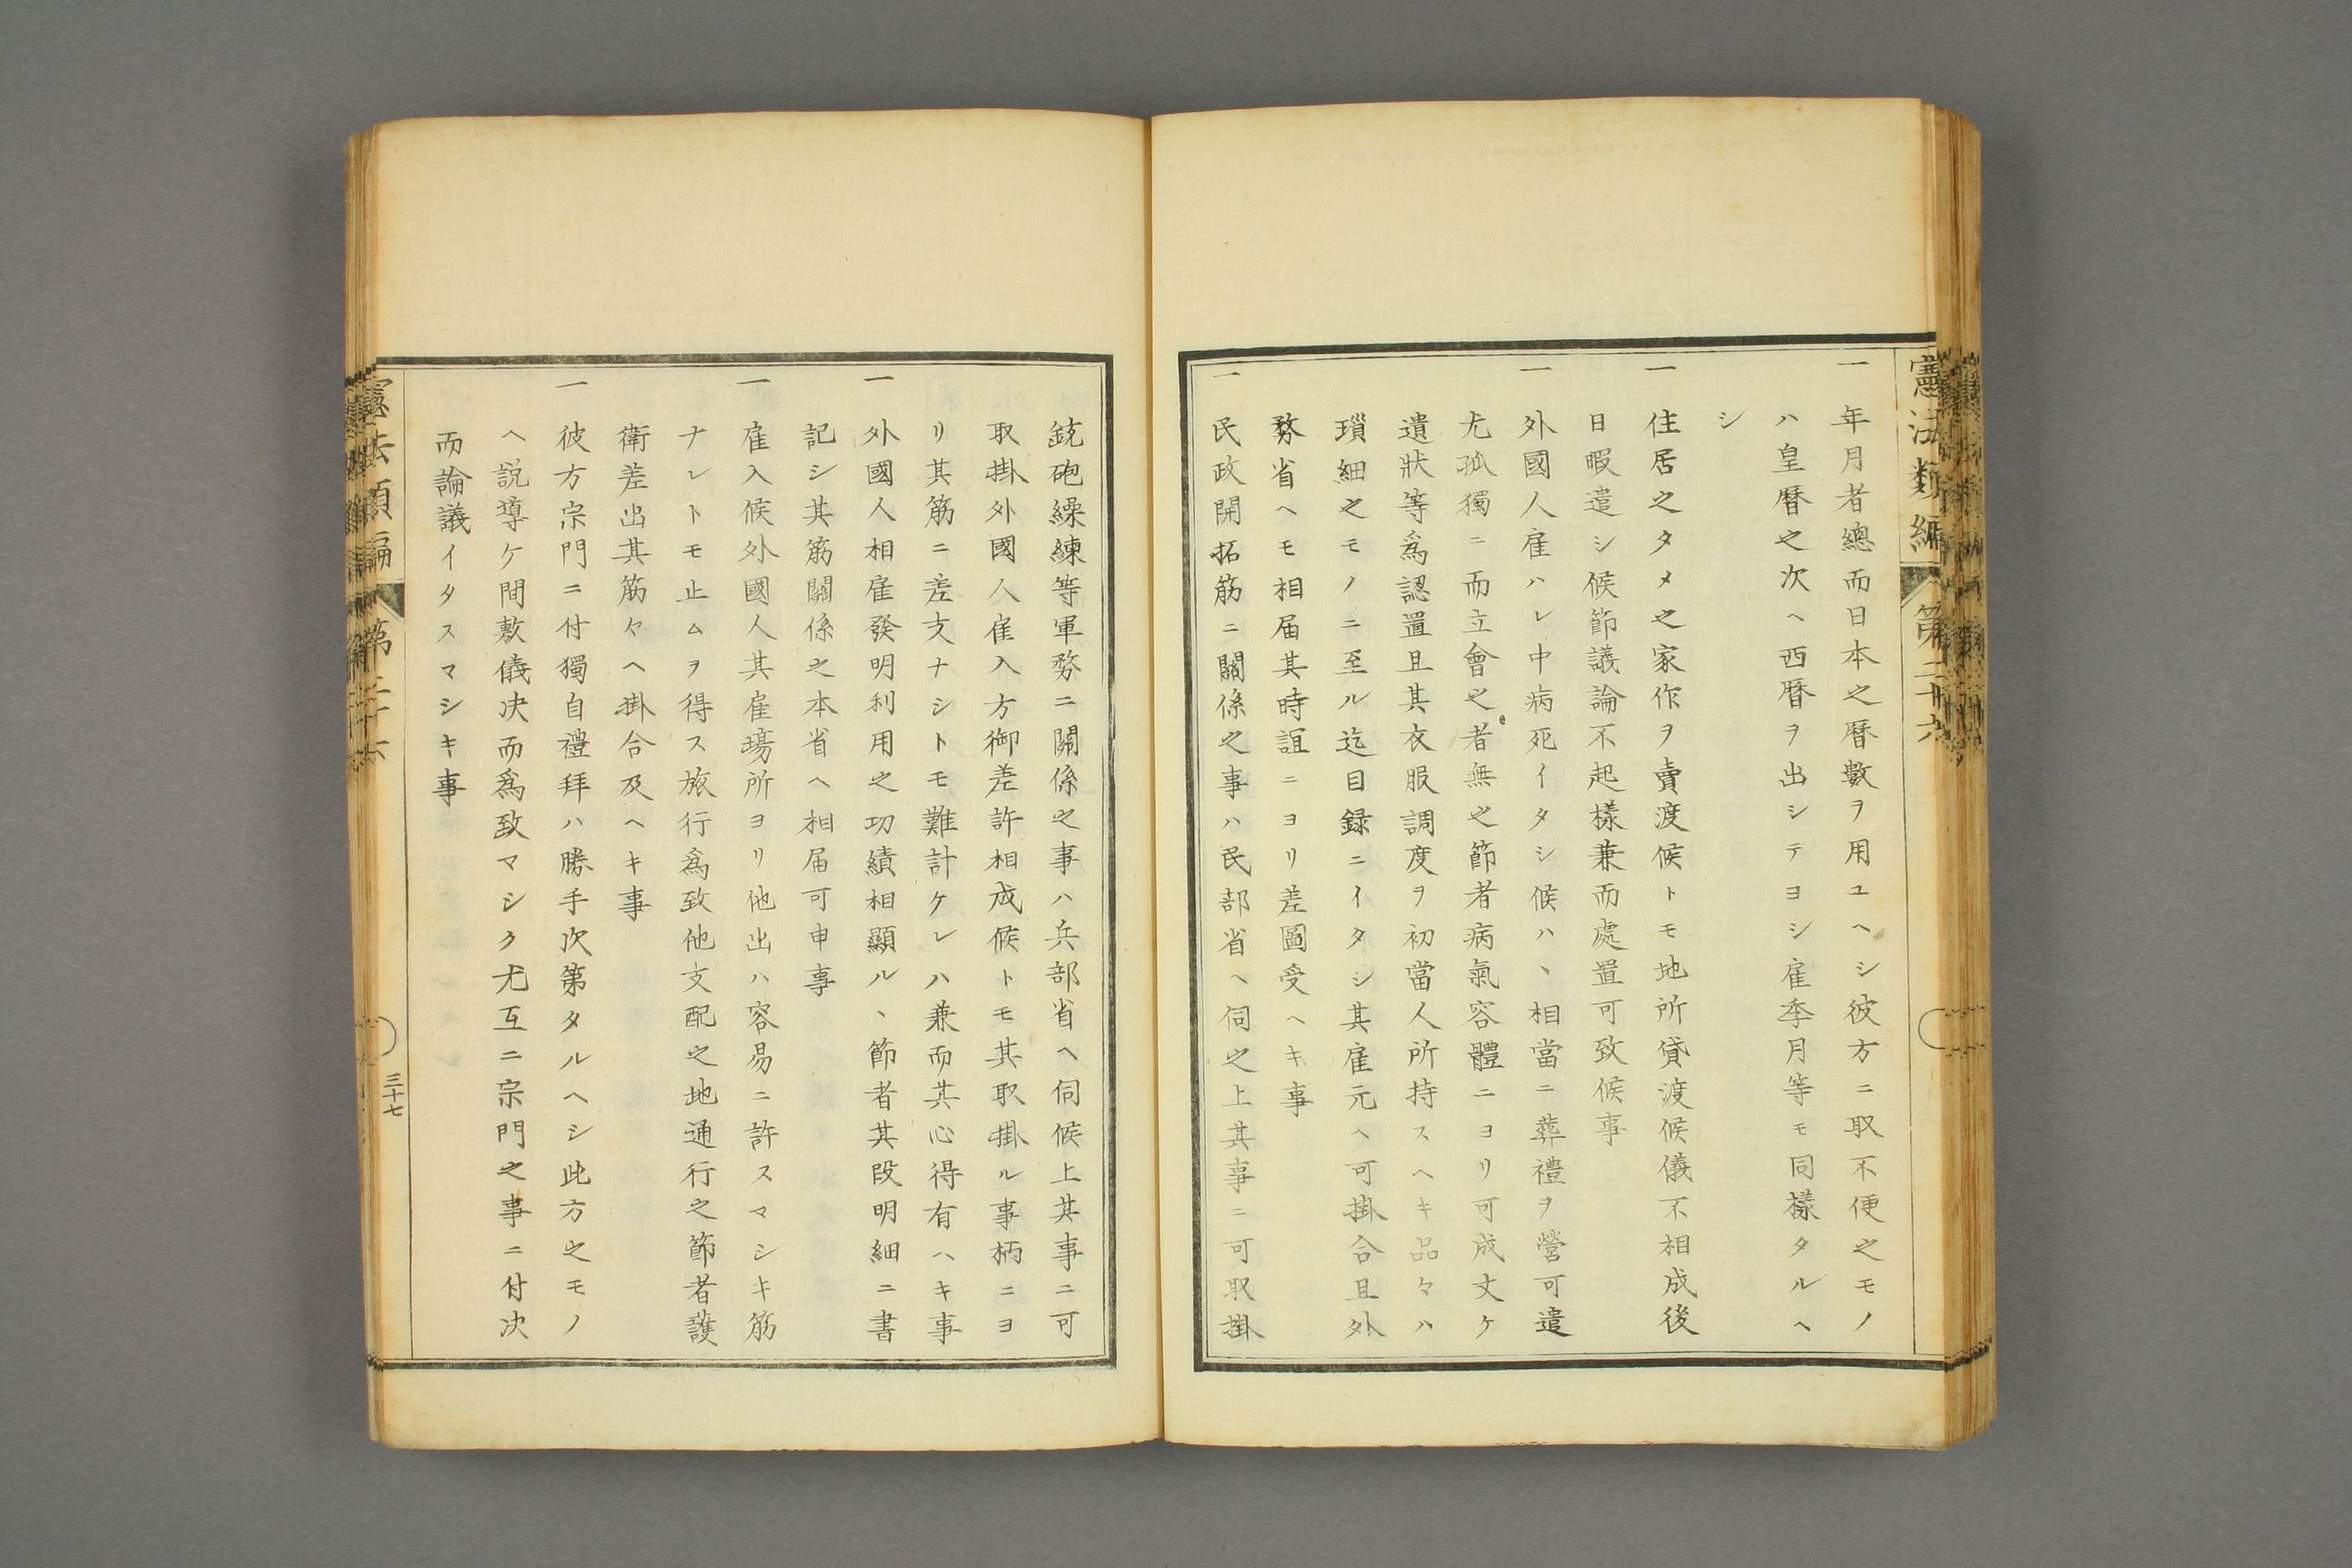 憲法類編 第二十六
一 年月者總而日本之曆數ヲ用ユヘシ彼方ニ取不便之モノ
ハ皇曆之次ヘ西曆ヲ出シテヨシ雇季月等モ同樣タルヘ
シ
一 住居之タメ之家作ヲ賣渡候トモ地所貸渡候儀不相成後
日暇遣シ候節議論不起樣兼而處置可致候事
一 外國人雇ハレ中病死イタシ候ハヽ相當ニ葬禮ヲ營可遣
尤孤獨ニ而立會之者無之節者病氣容體ニヨリ可成丈ケ
遺狀等爲認置且其衣服調度ヲ初當人所持スヘキ品々ハ
瑣細之モノニ至ル迄目録ニイタシ其雇元ヘ可掛合且外
務省ヘモ相届其時誼ニヨリ差圖受ヘキ事
一 民政開拓筋ニ關係之事ハ民部省ヘ伺之上其事ニ可取掛
銃砲繰練等軍務ニ關係之事ハ兵部省ヘ伺候上其事ニ可
取掛外國人雇入方御差許相成候トモ其取掛ル事柄ニヨ
リ其筋ニ差支ナシトモ難計ケレハ兼而其心得有ハキ事
一 外國人相雇發明利用之功績相顯ルヽ節者其段明細ニ書
記シ其筋關係之本省ヘ相届可申事
一 雇入候外國人其雇場所ヨリ他出ハ容易ニ許スマシキ筋
ナレトモ止ムヲ得ス旅行爲致他支配之地通行之節者護
衛差出其筋々ヘ掛合及ヘキ事
一 彼方宗門ニ付獨自禮拜ハ勝手次第タルヘシ此方之モノ
ヘ説導ケ間敷儀决而爲致マシク尤互ニ宗門之事ニ付决
而論議イタスマシキ事
憲法類編 第二十六
三十七